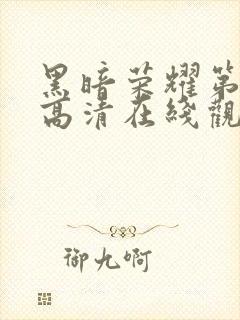 黑暗荣耀第
高清在线觀
御九啊